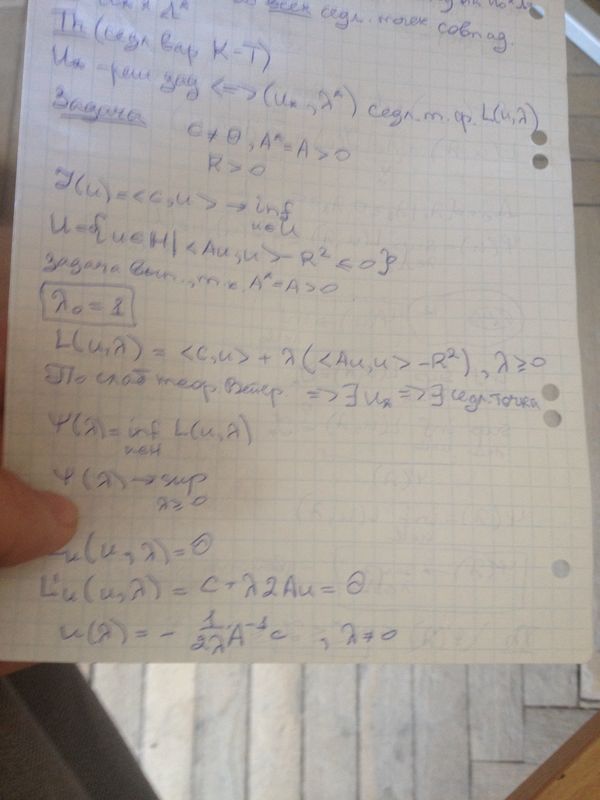 всех седл. точек совпад.
Th (седл вар К-Т)
U* - реш зад <=> (U*, λ*) седл. т. ф. L(u,λ)
Задача
c ≠ θ, A* = A > 0
R > 0
J(u) = <c,u> → inf
u∈U
U = {u∈H | <Au,u> - R² ≤ 0}
задача вып., т.к. A* = A > 0
λ₀ = 1
L(u,λ) = <c,u> + λ(<Au,u> - R²), λ ≥ 0
По слаб теор. Вейер => ∃ U* => ∃ седл. точка
Ψ(λ) = inf L(u,λ)
u∈H
Ψ(λ) → sup
λ≥0
u(u,λ) = θ
L'u(u,λ) = c + λ2Au = θ
u(λ) = - 1/2λ A⁻¹c , λ ≠ 0